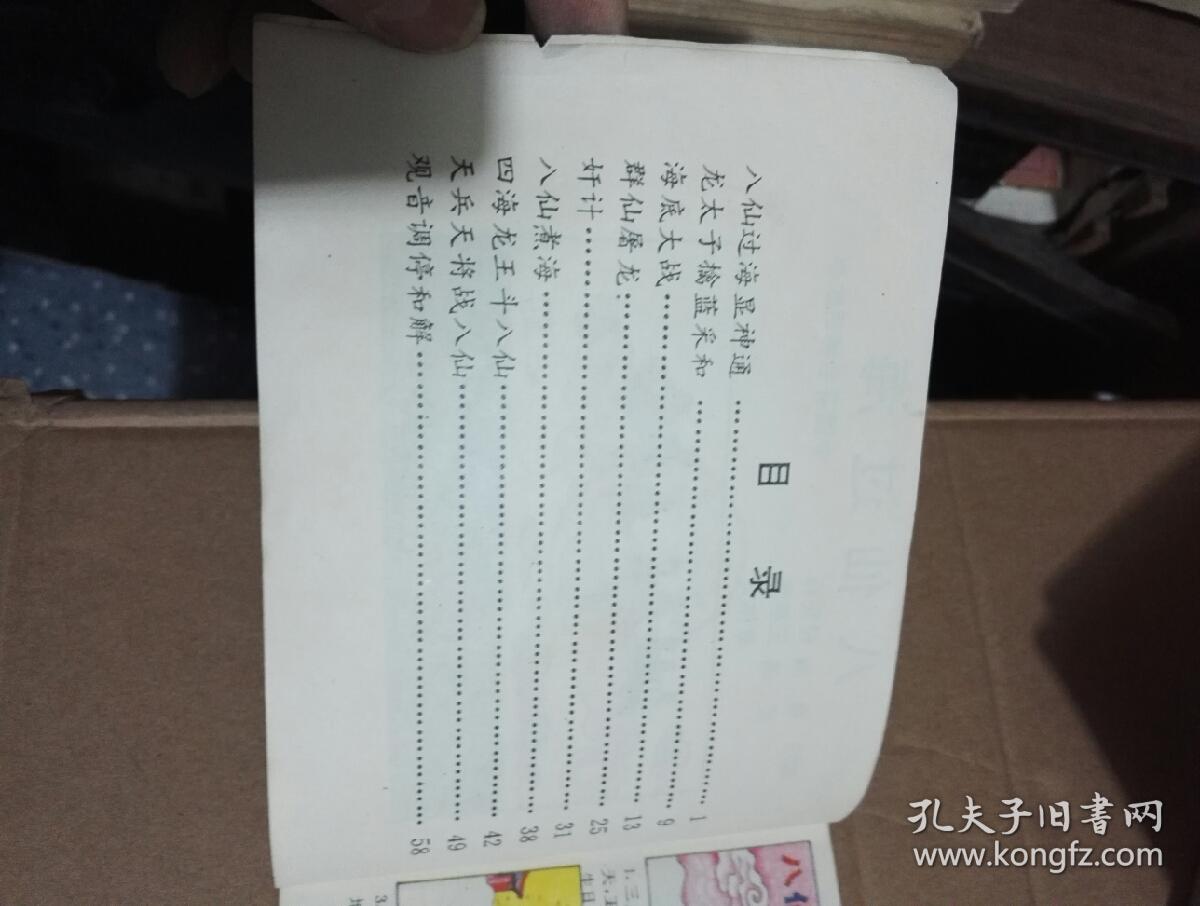 目 录
八仙过海显神通 …… 1
龙太子擒蓝采和 …… 9
海底大战 …… 13
群仙屠龙 …… 25
奸计 …… 31
八仙煮海 …… 38
四海龙王斗八仙 …… 42
天兵天将战八仙 …… 49
观音调停和解 …… 58
八
1.三
生日
3.
孔夫子旧書网
www.kongfz.com